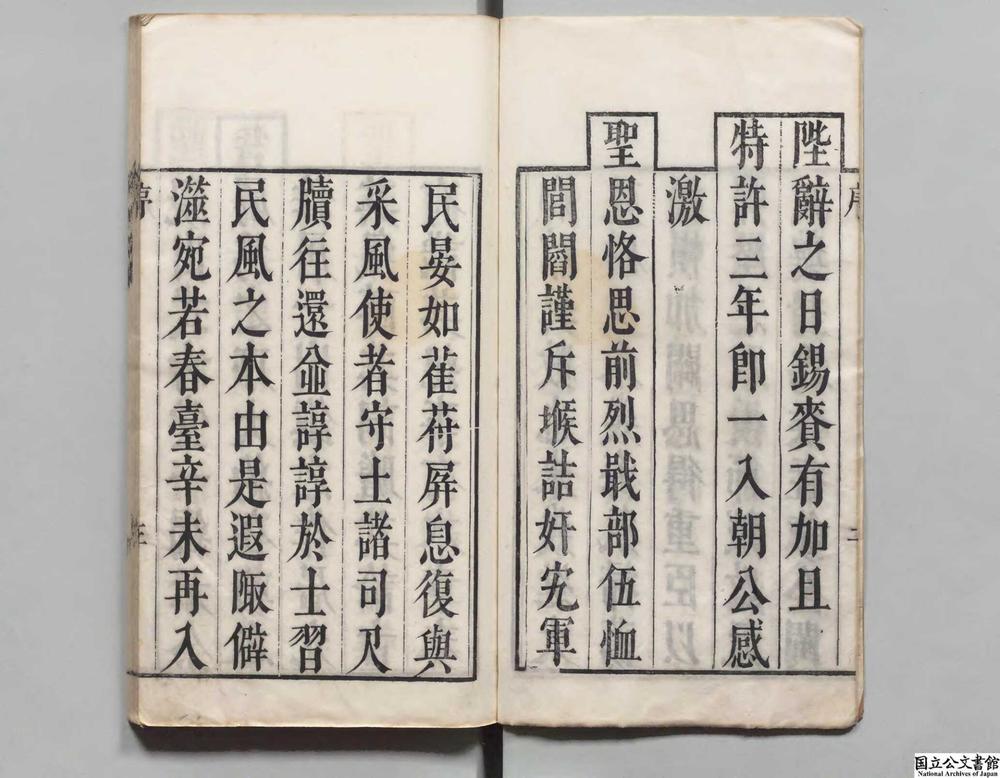 陛辭之日錫賚有加且
特許三年卽一入朝公感
激
聖恩恪思前烈戢部伍恤
閭閻謹斥堠詰奸宄軍
民晏如萑苻屏息復與
采風使者守土諸司尺
牘往還並諄諄於士習
民風之本由是遐陬僻
澨宛若春臺辛未再入
序
二
序
三
国立公文書館
National Archives of Japan